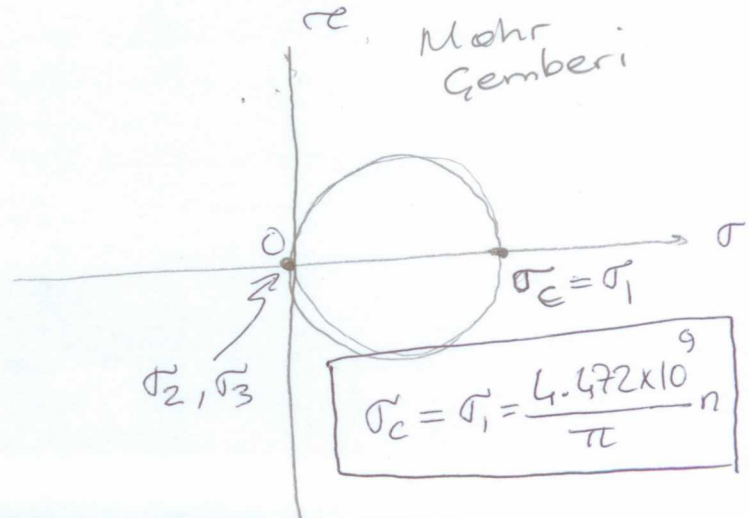 τ
Mohr
Çemberi
O
σ
σc = σ1
σ2, σ3
σc = σ1 = 4.472x10^9/π n